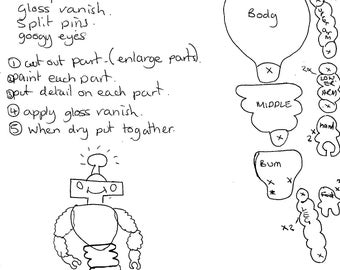 gloss vanish.
split pins.
googy eyes
① cut out part. (enlarge parts).
② paint each part.
③ put detail on each part.
④ apply gloss vanish.
⑤ when dry put together.
Body
x
MIDDLE
x
Bum
x x
x
2x
x
LOWER
ARM
x
x
hand
2x
x
LEG
x
x2
x
Foot